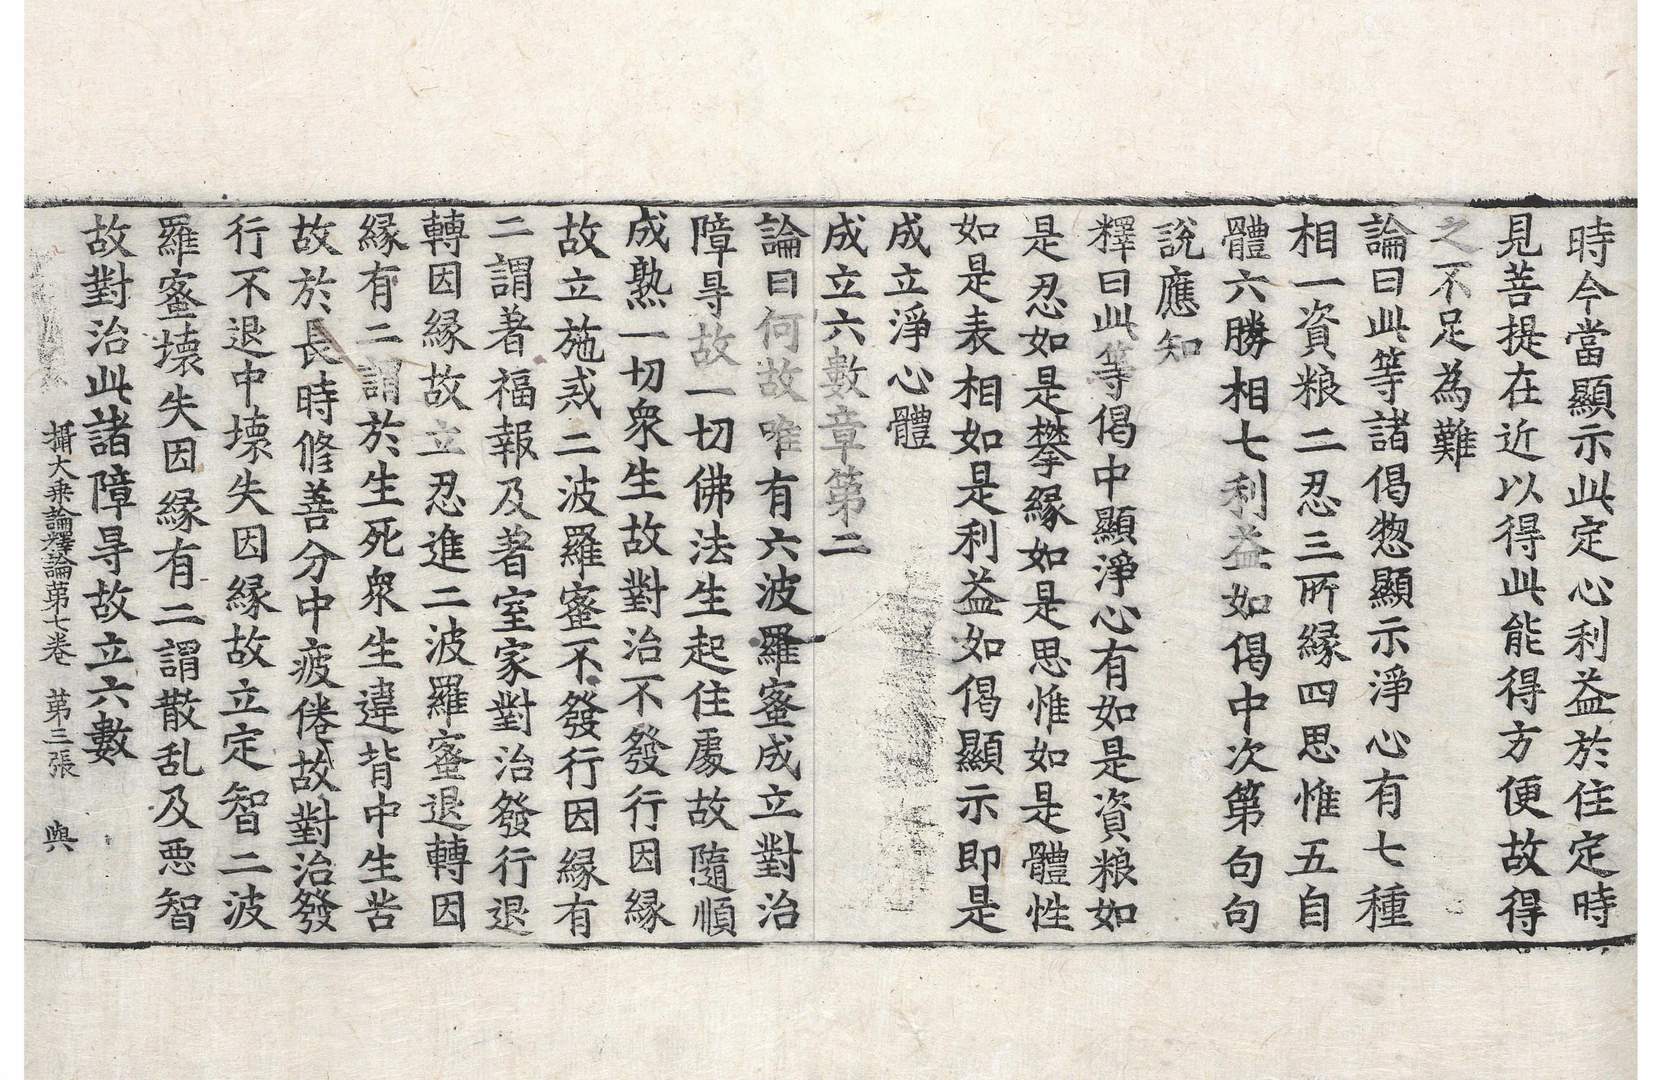 時今當顯示此定心利益於住定時
見菩提在近以得此能得方便故得
之不足為難
論曰此等諸偈惣顯示淨心有七種
相一資粮二忍三所縁四思惟五自
體六勝相七利益如偈中次第句句
說應知
釋曰此等偈中顯淨心有如是資粮如
是忍如是攀縁如是思惟如是體性
如是表相如是利益如偈顯示即是
成立淨心體
成立六數章第二
論曰何故唯有六波羅蜜成立對治
障㝵故一切佛法生起住處故隨順
成熟一切衆生故對治不發行因縁
故立施戒二波羅蜜不發行因縁有
二謂著福報及著室家對治發行退
轉因縁故立忍進二波羅蜜退轉因
縁有二謂於生死衆生違背中生苦
故於長時修善分中疲倦故對治發
行不退中壊失因縁故立定智二波
羅蜜壊失因縁有二謂散乱及悪智
故對治此諸障㝵故立六數
攝大乗論釋論第七卷　第三張　與